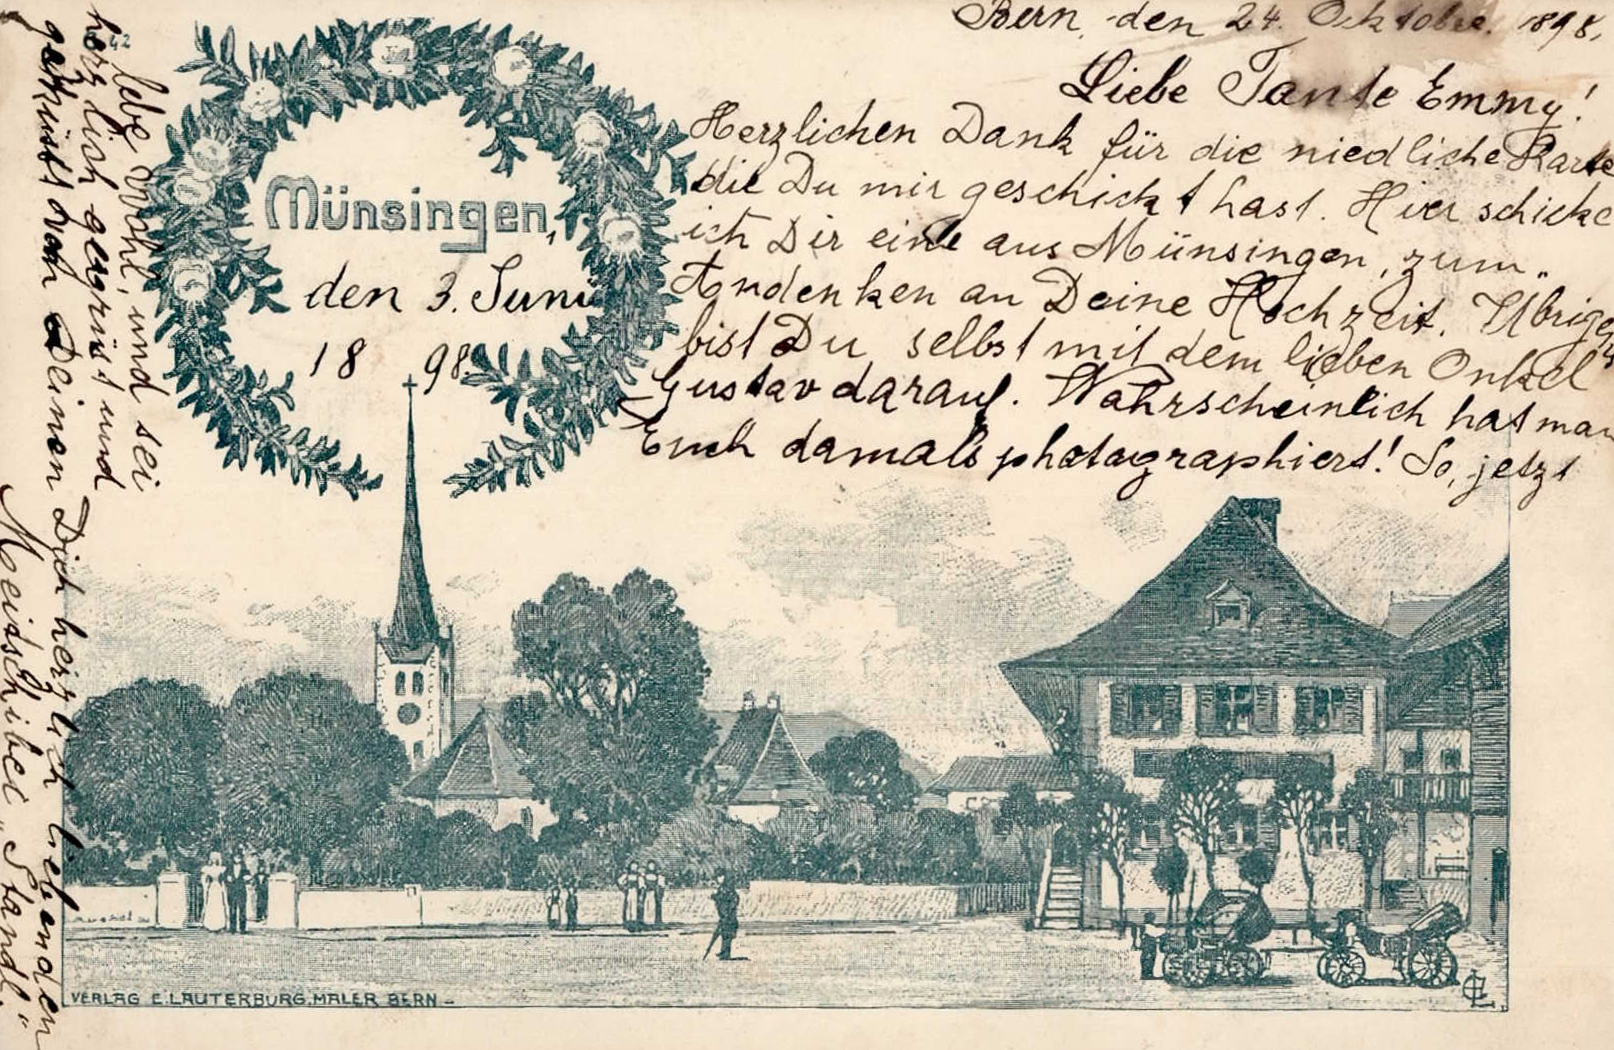 Bern, den 24. Oktober. 1898.
Liebe Tante Emmy!
Herzlichen Dank für die niedliche Karte
die Du mir geschickt hast. Hier schicke
ich Dir eine aus Münsingen, zum
Andenken an Deine Hochzeit. Übrigens
bist Du selbst mit dem lieben Onkel
Gustav darauf. Wahrscheinlich hat man
Euch damals photographiert! So, jetzt
lebe wohl, und sei
herzlich gegrüsst und
geküsst von Deinen Dich herzlich liebenden
Meitschibei „Standl."
42
Münsingen,
den 3. Juni
18 98.
VERLAG E. LAUTERBURG. MALER BERN